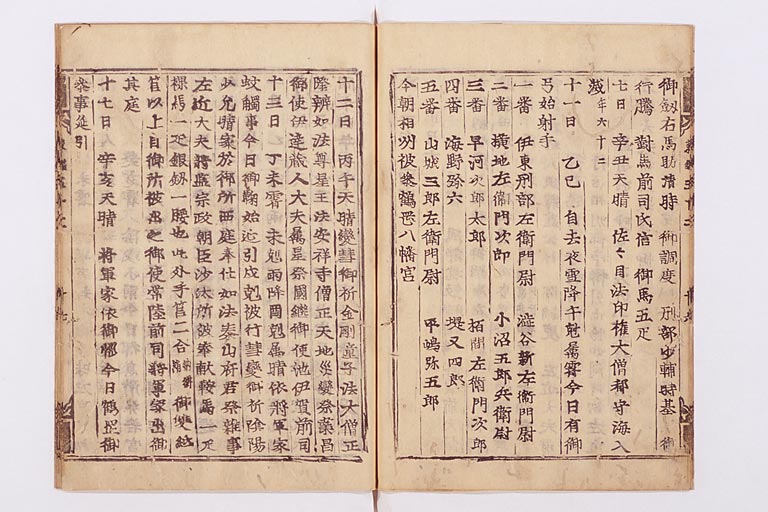 御劔右馬助清時 御調度 刑部少輔時基 御
行騰 對馬前司氏信 御馬五疋
七日 辛丑天晴 佐々目法印権大僧都守海入
滅年六十二
十一日 乙巳 自去夜雪降午尅属霽今日有御
弓始射手
一番 伊東刑部左衛門尉 澁谷新左衛門尉
二番 横地左衛門次郎 小沼五郎兵衛尉
三番 早河次郎太郎 栢間左衛門次郎
四番 海野弥六 堤又四郎
五番 山城三郎左衛門尉 平嶋弥五郎
今朝相州被参鶴岡八幡宮
十二日 丙午天晴變彗御祈金剛童子法大僧正
隆辨如法尊星王法安祥寺僧正天地災變祭業昌
御使伊達蔵人大夫属星祭國継御使池伊賀前司
十三日 丁未霽 未尅雨降同尅属晴依将軍家
蚊觸事今日御鞠始延引戌尅被行彗變御祈陰陽
少允晴家於御所西庭奉仕如法泰山府君祭雑事
左近大夫将監宗政朝臣沙汰所被奉献鞍馬一疋
裸馬一疋銀劔一腰也此外手筥二合 御双紙
筥以上自御所被出之御使常陸前司将軍家出御
其庭
十七日 辛亥天晴 将軍家依御悩今日鶴岡御
参事延引